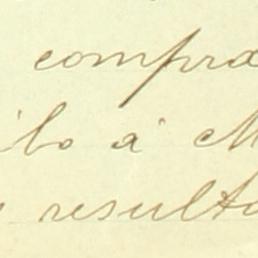 compra
ilo á M
resulta